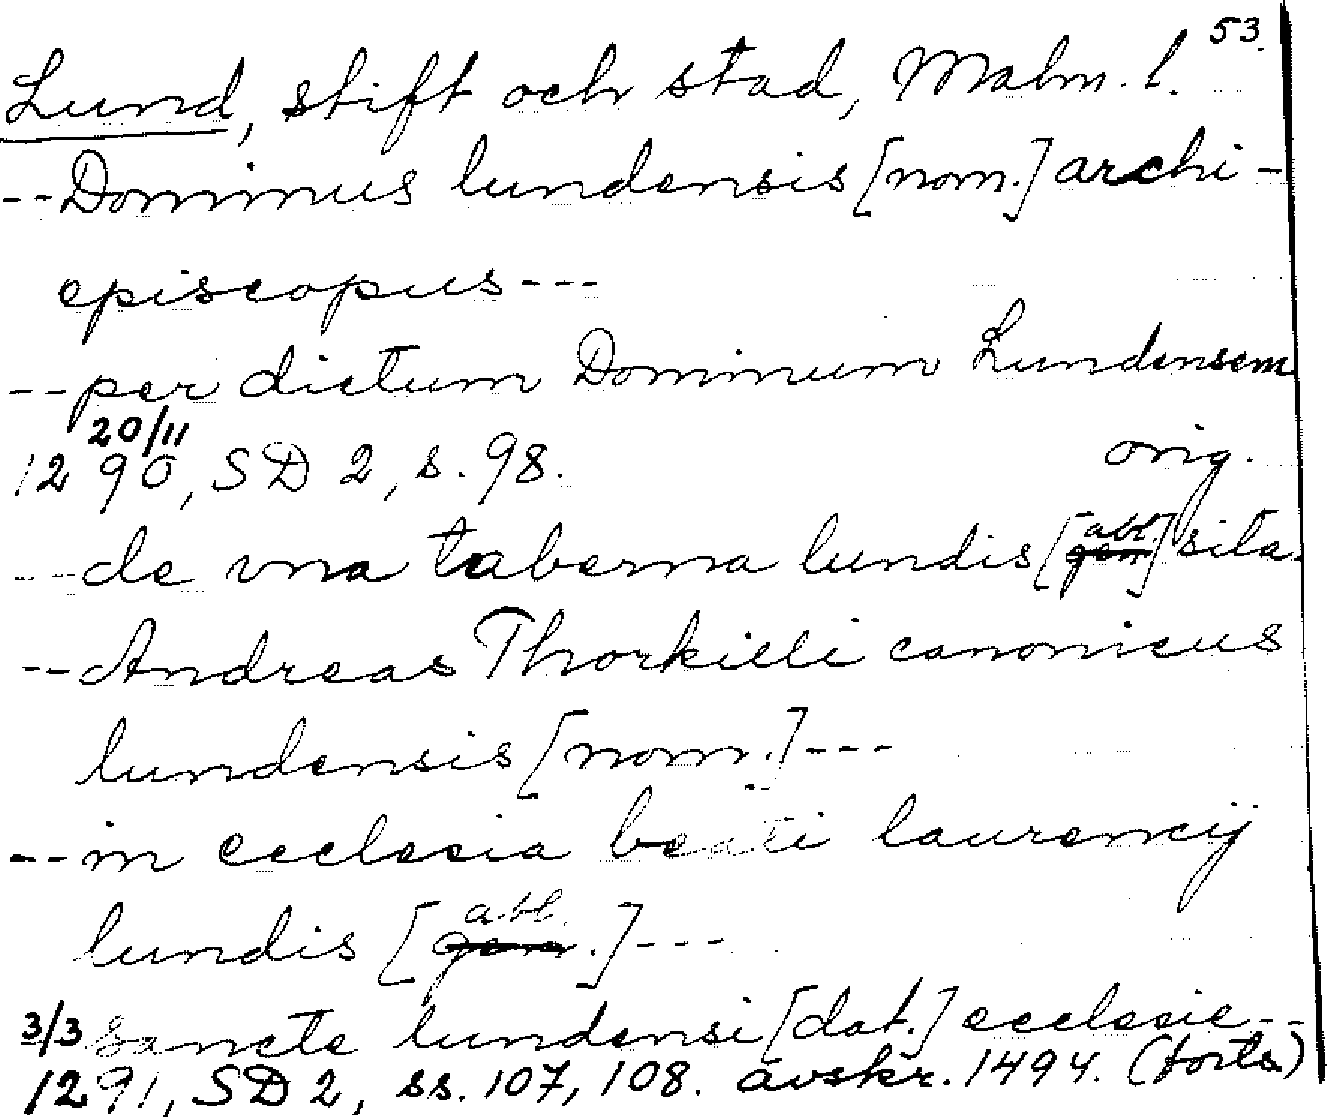 53.
Lund, stift och stad, Malm. l.
--Dominus lundensis [nom.] archi-
episcopus---
--per dictum Dominum Lundensem
20/11
1290, SD 2, s. 98. orig.
---de vna taberna lundis [gen abl.] sita.
--Andreas Thorkilli canonicus
lundensis [nom.]---
--in ecclesia beati laurencij
lundis [gen. abl.]---
3/3 sancte lundensi [dat.] ecclesie--
1291, SD 2, ss. 107, 108. avskr. 1494. (forts.)